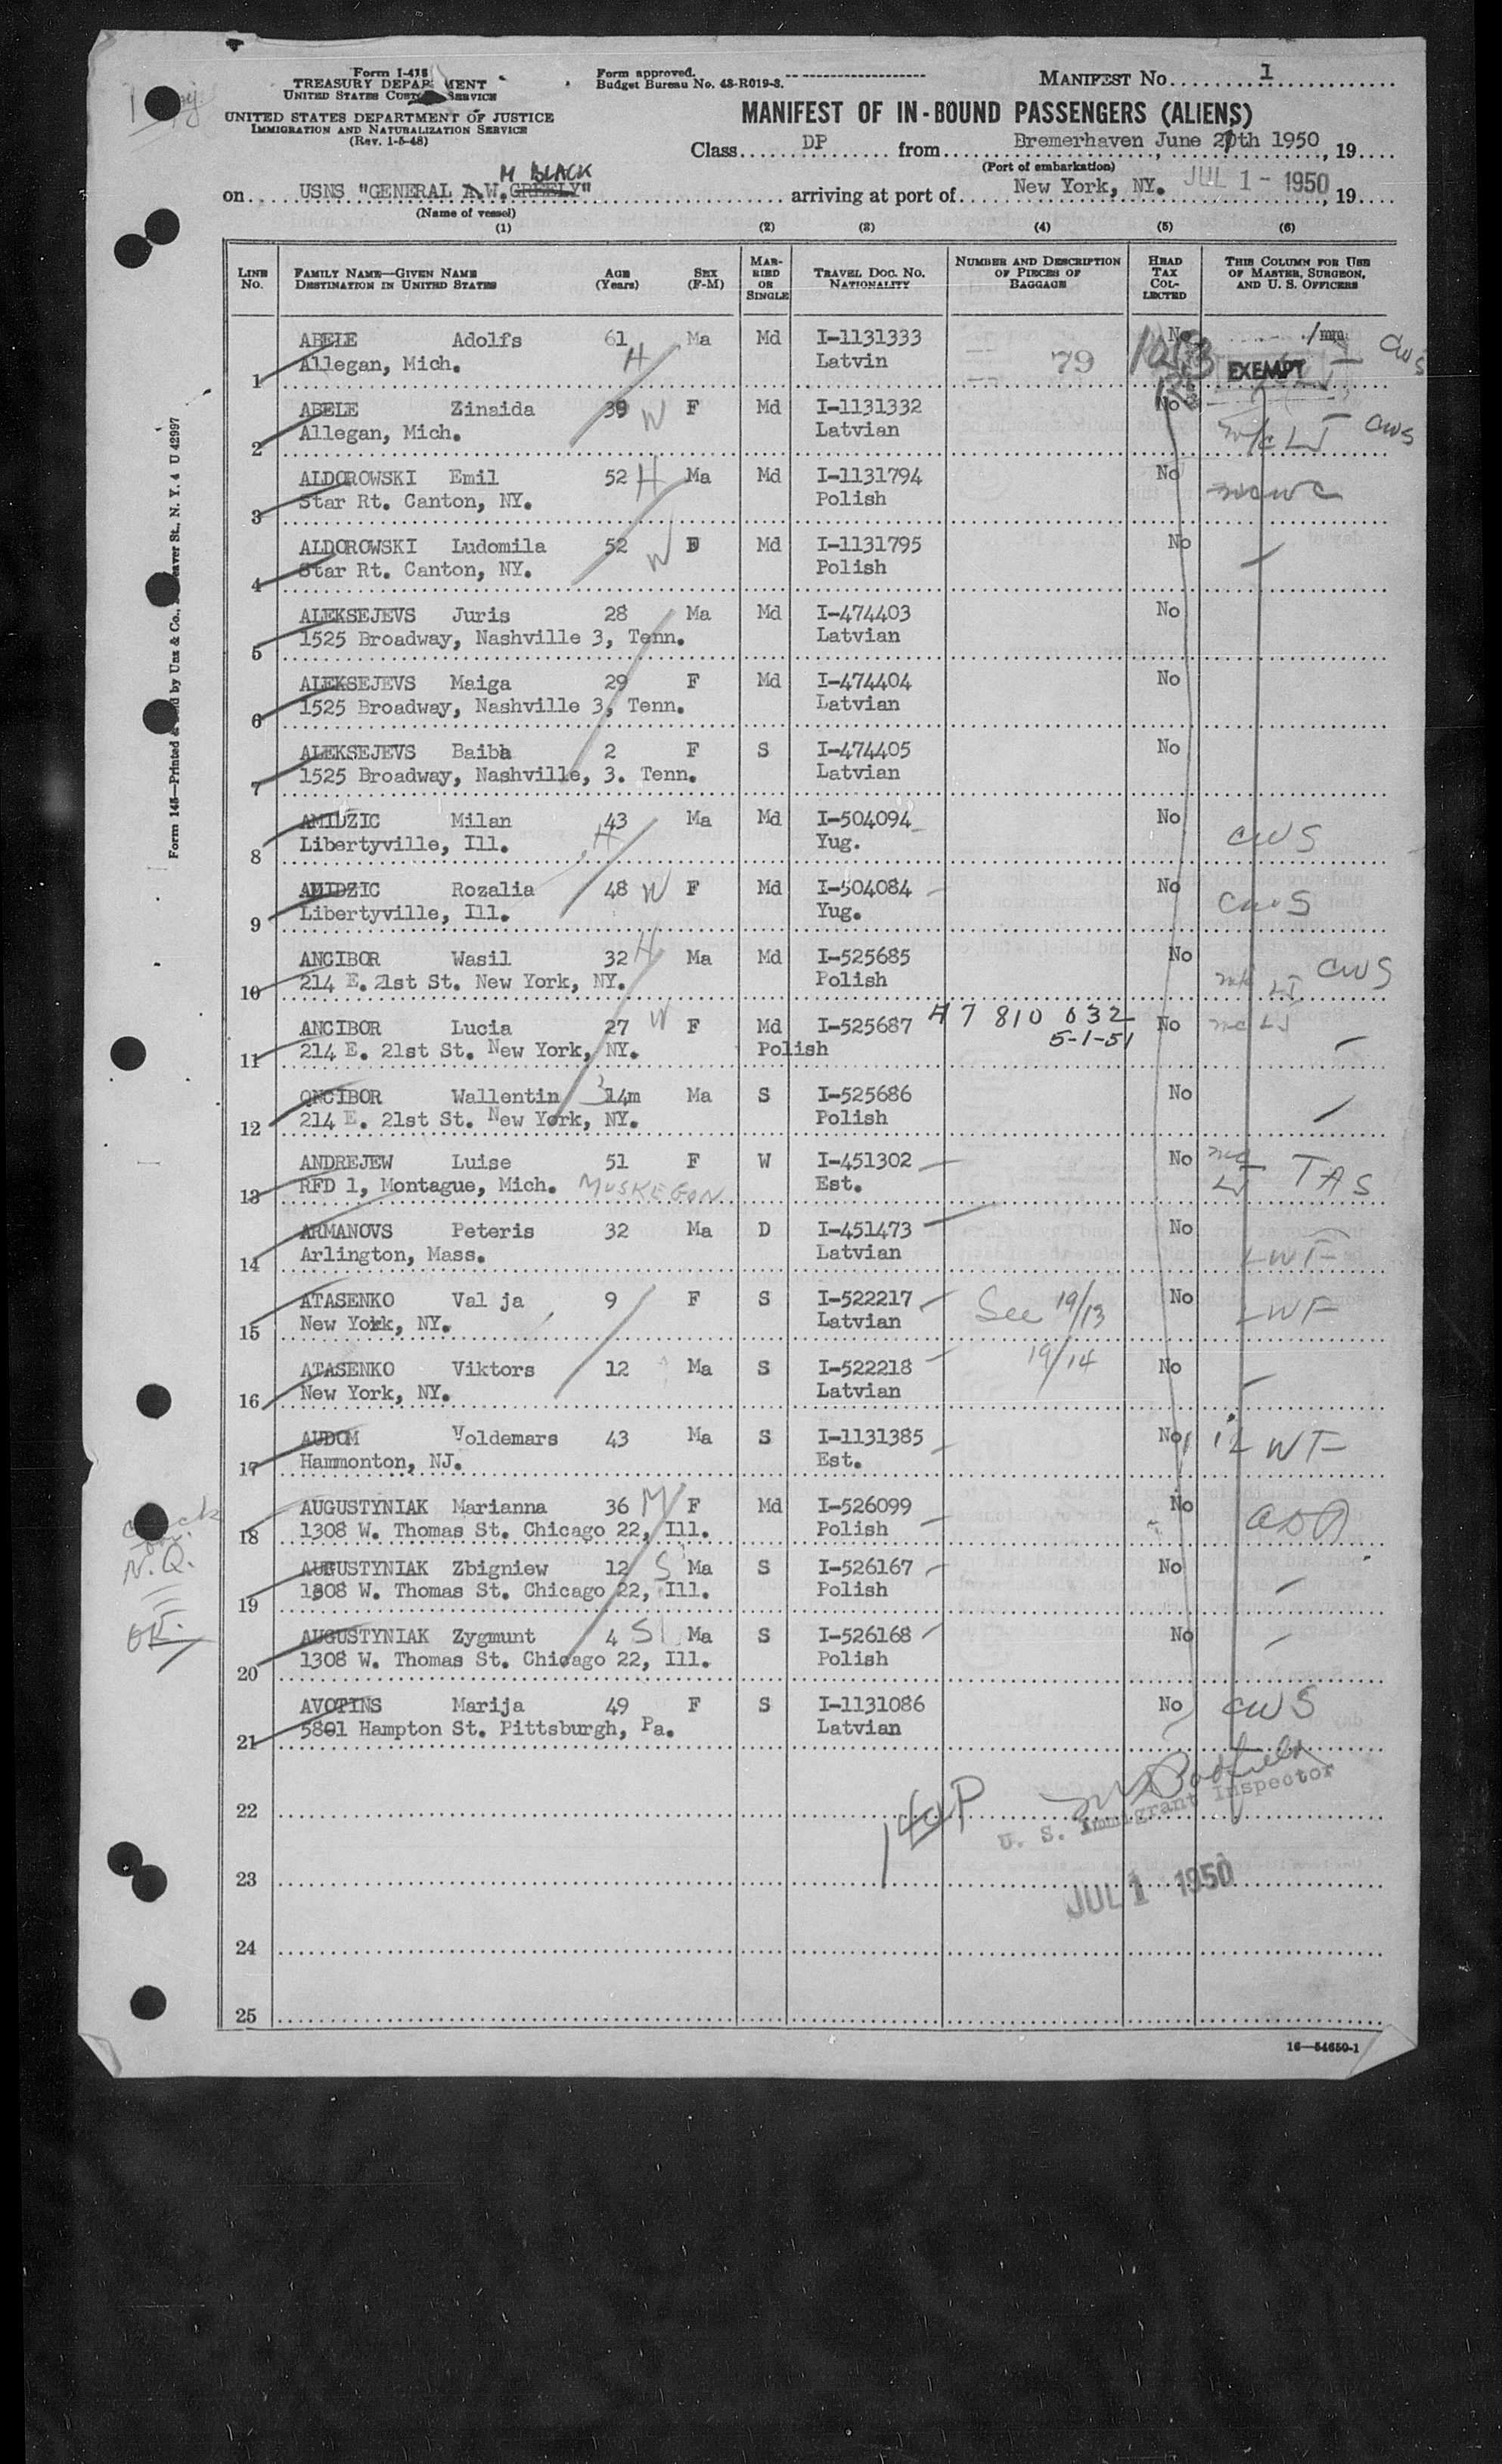 Form I-418
TREASURY DEPARTMENT
UNITED STATES CUSTOMS SERVICE
UNITED STATES DEPARTMENT OF JUSTICE
IMMIGRATION AND NATURALIZATION SERVICE
(Rev. 1-5-48)
Form approved.
Budget Bureau No. 43-R019-3.
MANIFEST No. 1
MANIFEST OF IN-BOUND PASSENGERS (ALIENS)
Class DP from Bremerhaven June 20th 1950, 19
(Port of embarkation)
M BLACK
on USNS "GENERAL A.W. GREELY" arriving at port of New York, NY. JUL 1 - 1950, 19
(Name of vessel)
(1) (2) (3) (4) (5) (6)
LINE No. FAMILY NAME—GIVEN NAME DESTINATION IN UNITED STATES AGE (Years) SEX (F-M) MARRIED OR SINGLE TRAVEL DOC. NO. NATIONALITY NUMBER AND DESCRIPTION OF PIECES OF BAGGAGE HEAD TAX COLLECTED THIS COLUMN FOR USE OF MASTER, SURGEON, AND U. S. OFFICERS
ABELE Adolfs 61 Ma Md I-1131333 No
1 Allegan, Mich. H Latvin 79 EXEMPT CWS
ABELE Zinaida 39 W F Md I-1131332 No
2 Allegan, Mich. Latvian CWS
ALDOROWSKI Emil 52 H Ma Md I-1131794 No
3 Star Rt. Canton, NY. Polish NCWC
ALDOROWSKI Ludomila 52 W F Md I-1131795 No
4 Star Rt. Canton, NY. Polish
ALEKSEJEVS Juris 28 Ma Md I-474403 No
5 1525 Broadway, Nashville 3, Tenn. Latvian
ALEKSEJEVS Maiga 29 F Md I-474404 No
6 1525 Broadway, Nashville 3, Tenn. Latvian
ALEKSEJEVS Baiba 2 F S I-474405 No
7 1525 Broadway, Nashville, 3. Tenn. Latvian
AMIDZIC Milan 43 Ma Md I-504094 No
8 Libertyville, Ill. H Yug. CWS
AMIDZIC Rozalia 48 W F Md I-504084 No
9 Libertyville, Ill. Yug. CWS
ANCIBOR Wasil 32 H Ma Md I-525685 No
10 214 E. 21st St. New York, NY. Polish CWS
ANCIBOR Lucia 27 W F Md I-525687 A7 810 032 No
11 214 E. 21st St. New York, NY. Polish 5-1-51
QNCIBOR Wallentin 14m Ma S I-525686 No
12 214 E. 21st St. New York, NY. Polish
ANDREJEW Luise 51 F W I-451302 No
13 RFD 1, Montague, Mich. MUSKEGON Est. TAS
ARMANOVS Peteris 32 Ma D I-451473 No
14 Arlington, Mass. Latvian LWF
ATASENKO Val ja 9 F S I-522217 See 19/13 No
15 New York, NY. Latvian LWF
ATASENKO Viktors 12 Ma S I-522218 19/14 No
16 New York, NY. Latvian
AUDOM Voldemars 43 Ma S I-1131385 No
17 Hammonton, NJ. Est. LWF
AUGUSTYNIAK Marianna 36 M F Md I-526099 No
18 1308 W. Thomas St. Chicago 22, Ill. Polish
AUGUSTYNIAK Zbigniew 12 S Ma S I-526167 No
19 1308 W. Thomas St. Chicago 22, Ill. Polish
AUGUSTYNIAK Zygmunt 4 S Ma S I-526168 No
20 1308 W. Thomas St. Chicago 22, Ill. Polish
AVOTINS Marija 49 F S I-1131086 No CWS
21 5801 Hampton St. Pittsburgh, Pa. Latvian
22
U. S. Immigrant Inspector
23
JUL 1 1950
24
25
16—54650-1
N.Q.
OK.